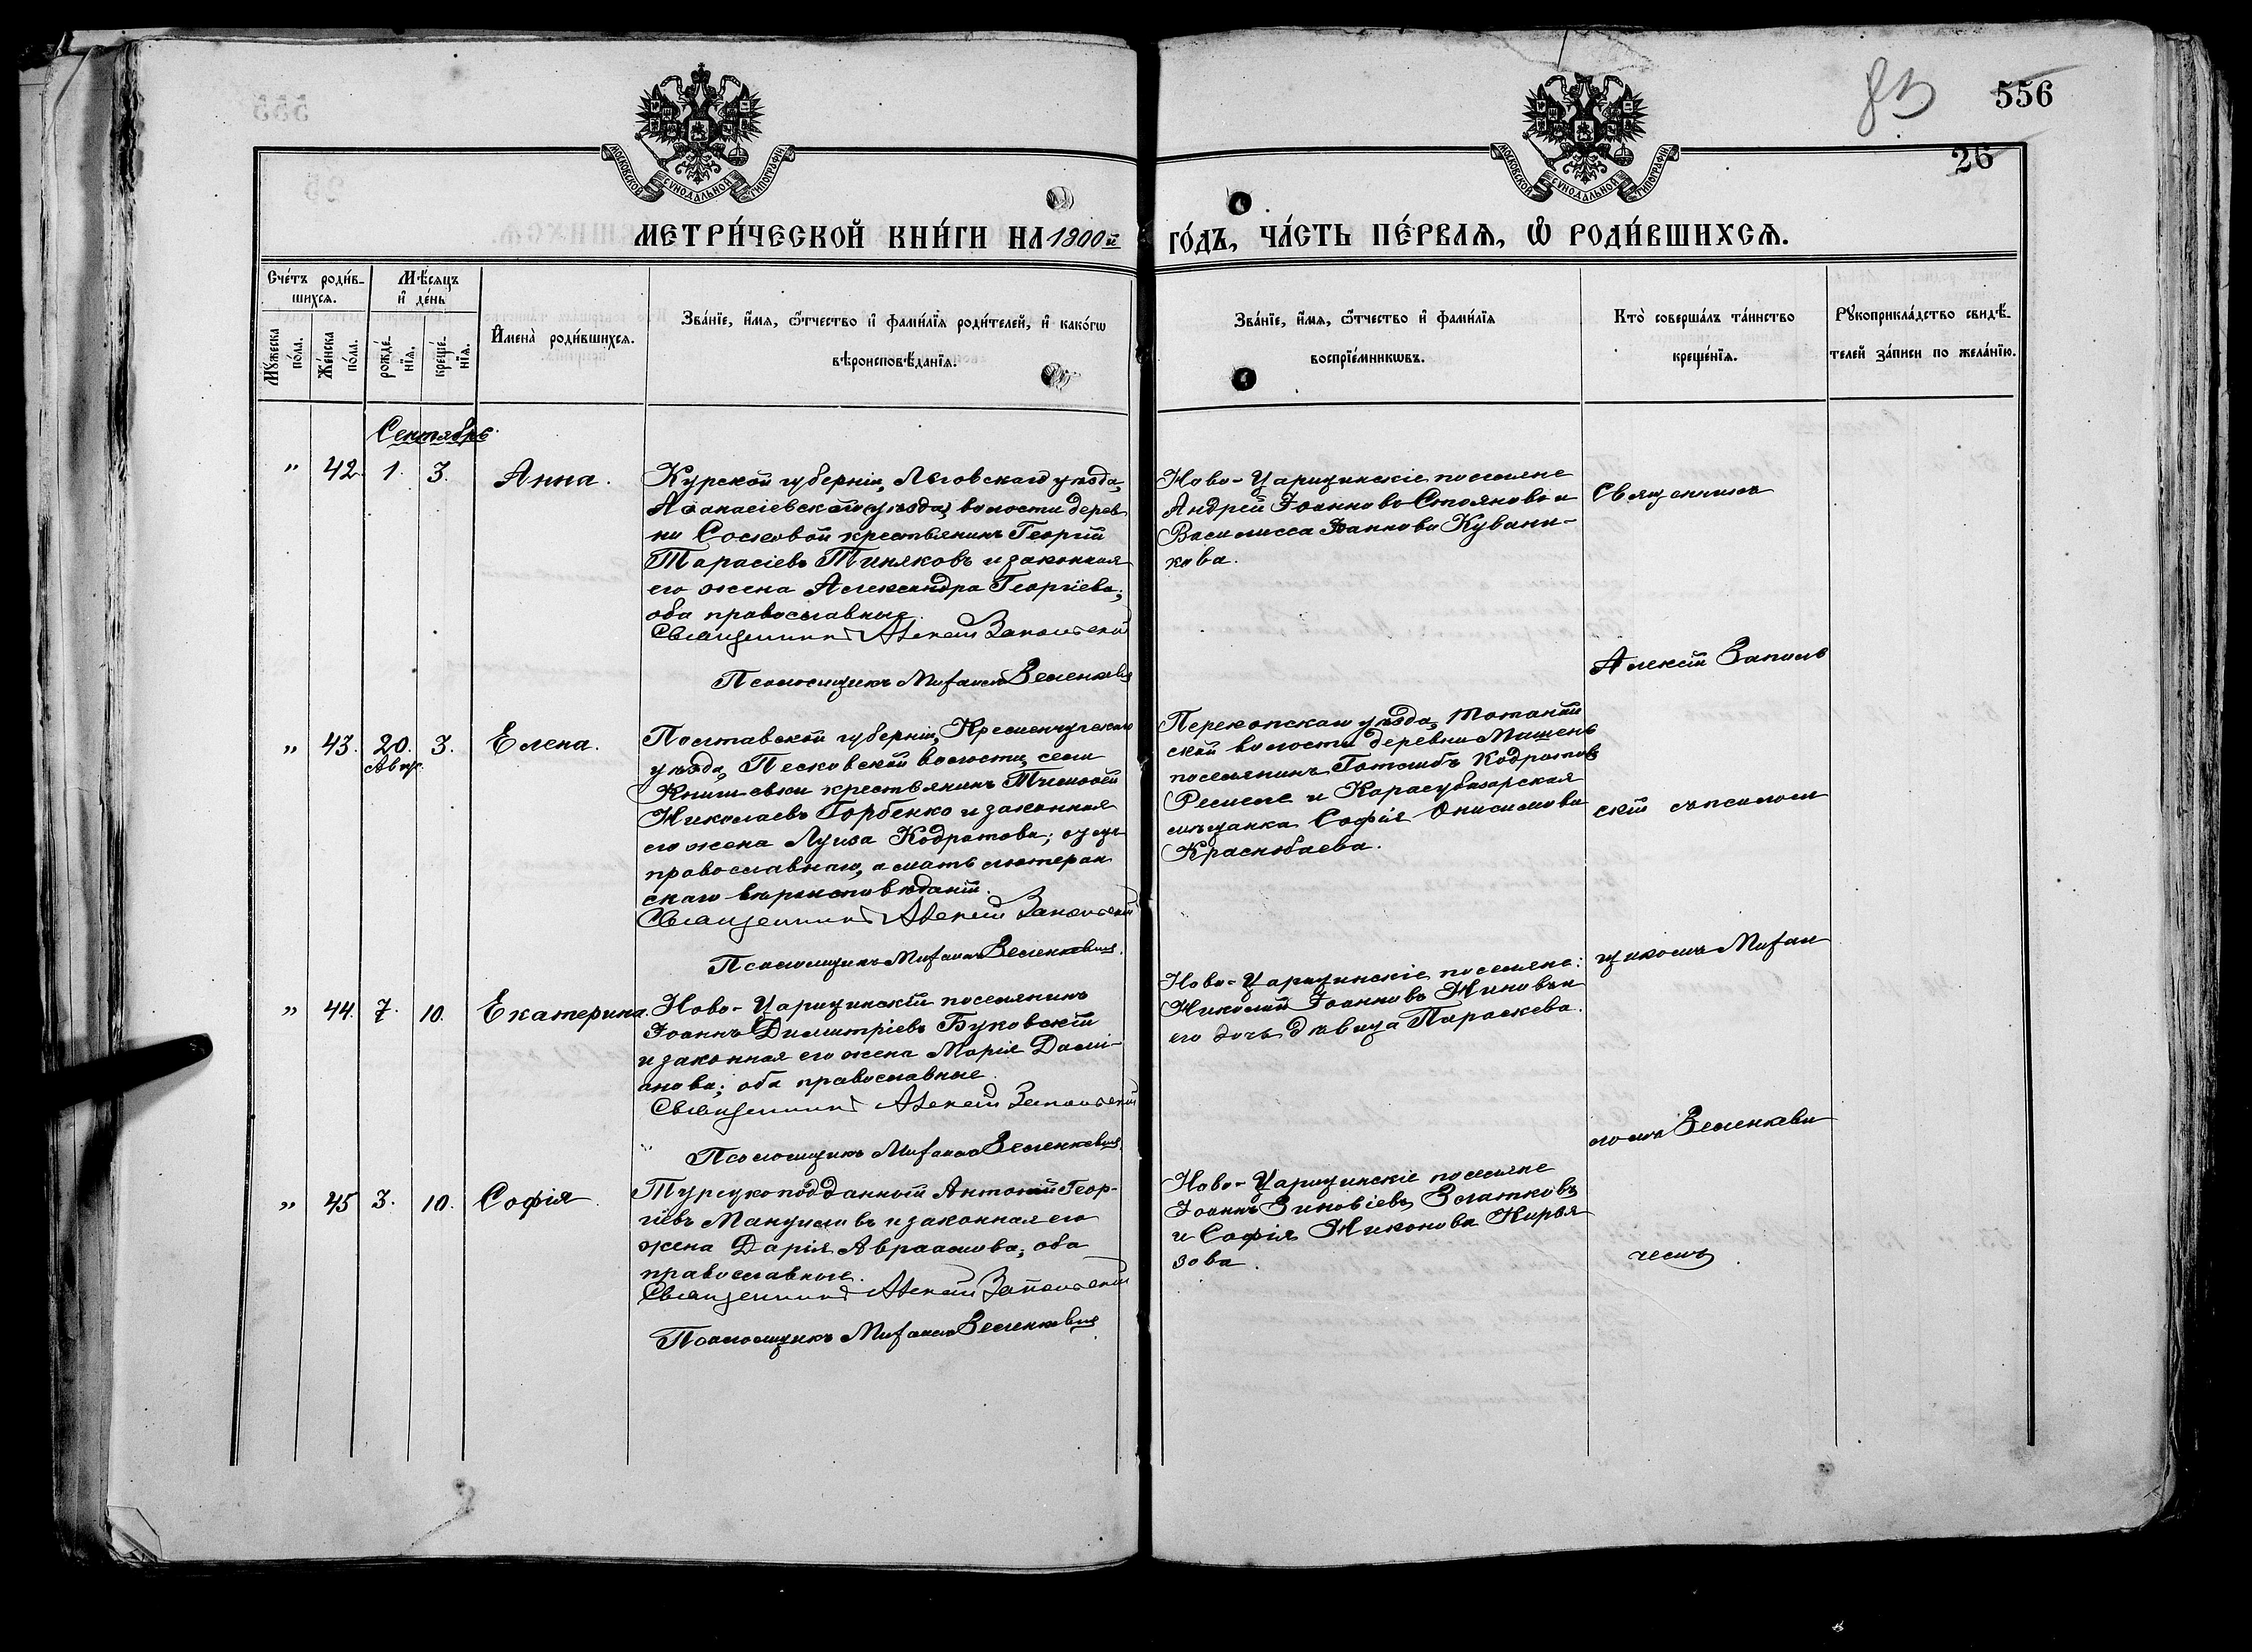 83
556
26
МОСКОВСКОЙ СѴНОДАЛЬНОЙ ТИПОГРАФІИ
МОСКОВСКОЙ СѴНОДАЛЬНОЙ ТИПОГРАФІИ
МЕТРИ́ЧЕСКОЙ КНИ́ГИ НА 1900й ГО́ДЪ, ЧА́СТЬ ПЕ́РВАѦ, Ѡ РОДИ́ВШИХСѦ.
Сче́тъ роди́в-
шихся.
Мѣ́сяцъ
и де́нь
Мꙋ́жеска
по́ла.
Же́нска
по́ла.
рожде́-
нїя.
креще́-
нїя.
И҆мена̀ роди́вшихся.
Зва́нїе, и҆́мя, ѻ҆́тчество и҆ фами́лїя роди́телей, и҆ како́гѡ
вѣроисповѣ́данїя.
Зва́нїе, и҆́мя, ѻ҆́тчество и҆ фами́лїя
воспрїе́мникѡвъ.
Кто̀ соверша́лъ та́инство
креще́нїя.
Рꙋкоприкла́дство свидѣ́-
телей за́писи по жела́нїю.
Сентябрь
" 42. 1. 3. Анна.
Курской губерніи, Льговскаго уѣзда,
Аѳанасіевской (уѣзда) волости дерев
ни Сосновой крестьянинъ Георгій
Тарасіевъ Тиняковъ и законная
его жена Александра Георгіева;
оба православные.
Священникъ Алексій Запольскій
Псаломщикъ Михаилъ Зеленкевичъ
Ново-Царицинскіе поселяне
Андрей Іоанновъ Стояновъ и
Василисса Іоаннова Кувани-
кова.
Священникъ
Алексій Заполь
" 43. 20. 3. Елена.
Авгр.
Полтавской губерніи, Кременчугскаго
уѣзда, Песковской волости, села
крестьянинъ Тимоѳей
Николаевъ Горбенко и законная
его жена Луиза Кодратова; отецъ
православнаго, а мать лютеран
скаго вѣроисповѣданій.
Священникъ Алексій Запольскій
Псаломщикъ Михаилъ Зеленкевичъ.
Перекопскаго уѣзда,
ской волости деревни
поселянинъ Готлибъ Кодратовъ
и Карасубазарская
мѣщанка Софія Онисимова
Краснобаева.
скій съ псалом
щикомъ Михаи
" 44. 7. 10. Екатерина.
Ново-Царицинскій поселянинъ
Іоаннъ Димитріевъ Буковскій
и законная его жена Марія Дамі-
анова; оба православные.
Священникъ Алексій Запольскій
" Псаломщикъ Михаилъ Зеленкевичъ.
Ново-Царицинскіе поселяне:
Николай Іоанновъ и
его дочь дѣвица Параскева.
ломъ Зеленкеви
" 45 3. 10. Софія
Турецкоподданный Антоній Геор-
гіевъ и законная его
жена Дарія Авраамова; оба
православные.
Священникъ Алексій Запольскій
Псаломщикъ Михаилъ Зеленкевичъ
Ново-Царицинскіе поселяне
Іоаннъ Зиновіевъ Златковъ
и Софія Никонова Кирья
зова.
чемъ.